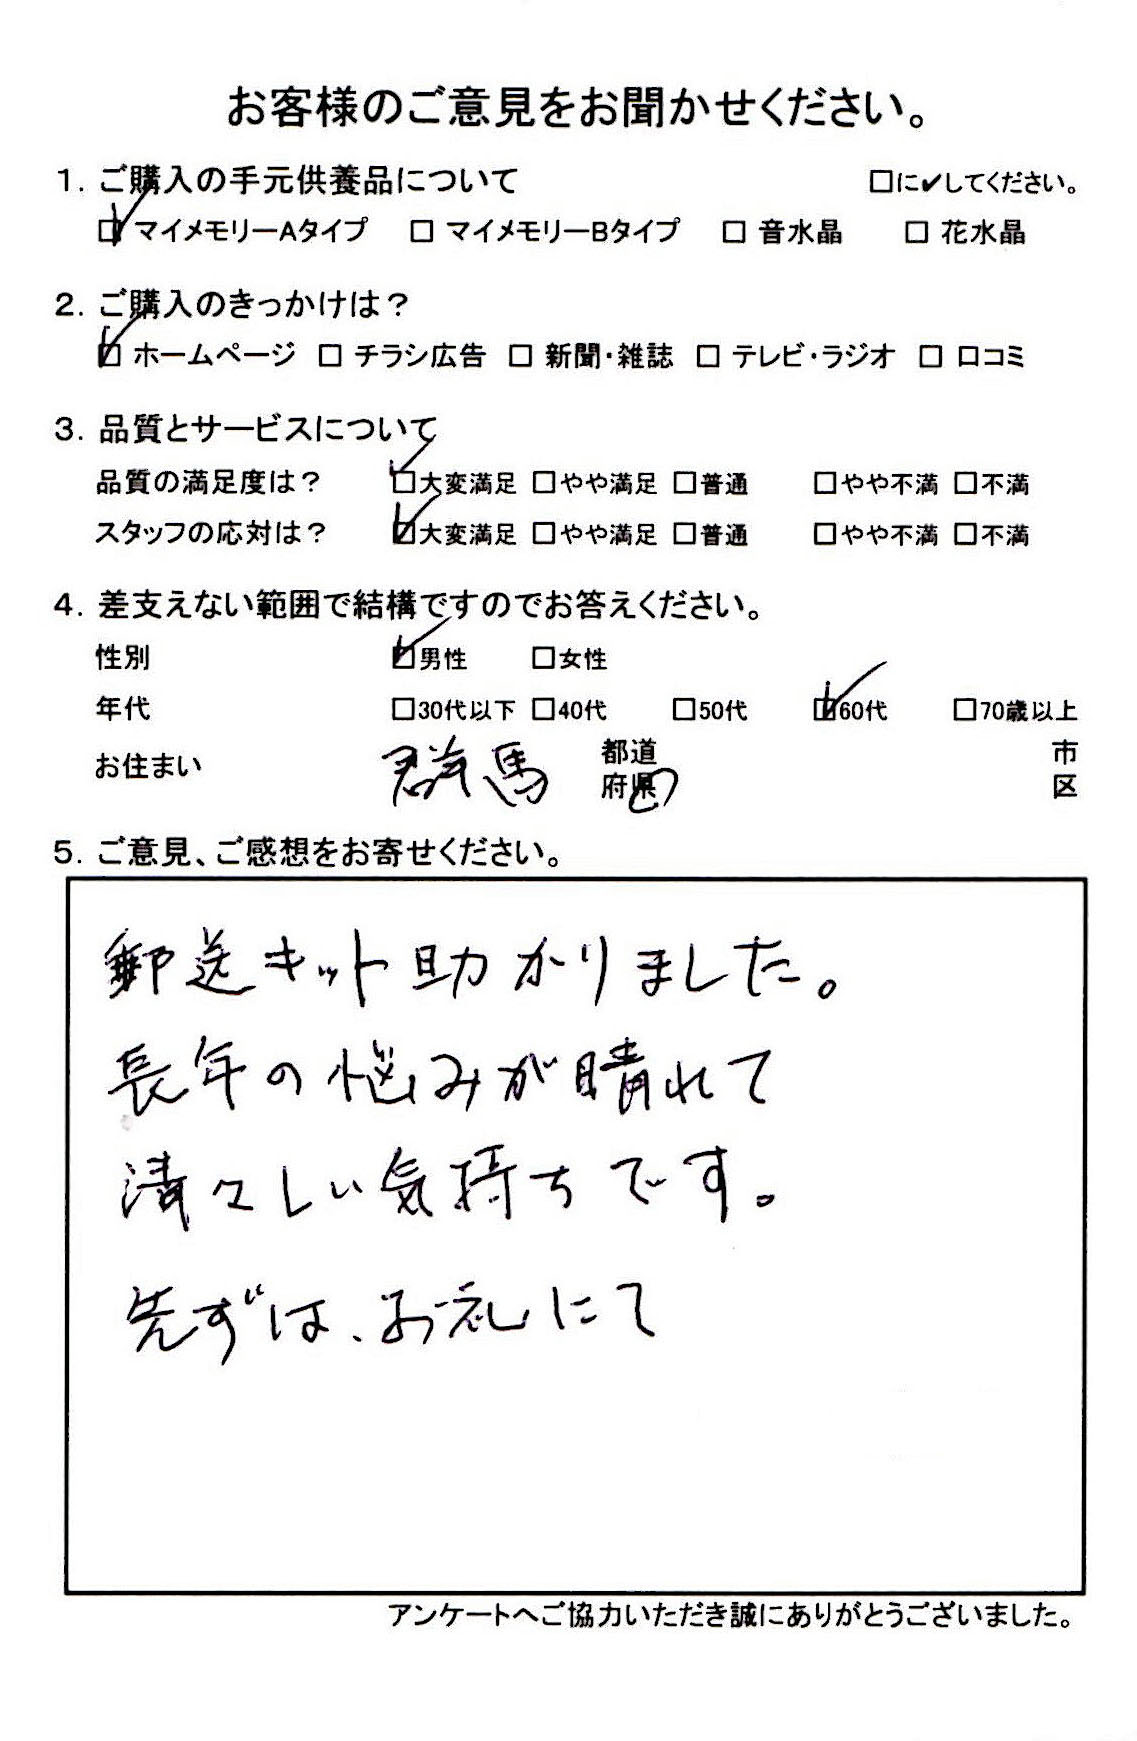 お客様のご意見をお聞かせください。
1. ご購入の手元供養品について □に✔してください。
☑ マイメモリーAタイプ □ マイメモリーBタイプ □ 音水晶 □ 花水晶
2. ご購入のきっかけは？
☑ ホームページ □ チラシ広告 □ 新聞・雑誌 □ テレビ・ラジオ □ 口コミ
3. 品質とサービスについて
品質の満足度は？ ☑大変満足 □やや満足 □普通 □やや不満 □不満
スタッフの応対は？ ☑大変満足 □やや満足 □普通 □やや不満 □不満
4. 差支えない範囲で結構ですのでお答えください。
性別 ☑男性 □女性
年代 □30代以下 □40代 □50代 ☑60代 □70歳以上
お住まい 群馬 都道府県 市区
5. ご意見、ご感想をお寄せください。
郵送キット助かりました。
長年の悩みが晴れて
清々しい気持ちです。
先ずは、お礼にて
アンケートへご協力いただき誠にありがとうございました。